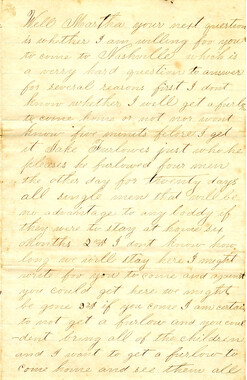 Well Martha your next question
is whether I am willing for you
to come to Nashville which is
a verry hard question to answer
for several reasons first I dont
know whether I will get a furlo
to come home or not nor wont
know five minuts before I get
it furlowes just who he
pleases he furlowed four men
the other day for twenty days
all single men that will be
no advantage to any boddy if
they were to stay at home
months 2nd I dont know how
long we will stay here I might
write for you to come and against
you could get here we might
be gone 3rd if you come I am certain
to not get a furlow and you could
dent bring all of the children
and I want to get a furlow to
come home and see them all